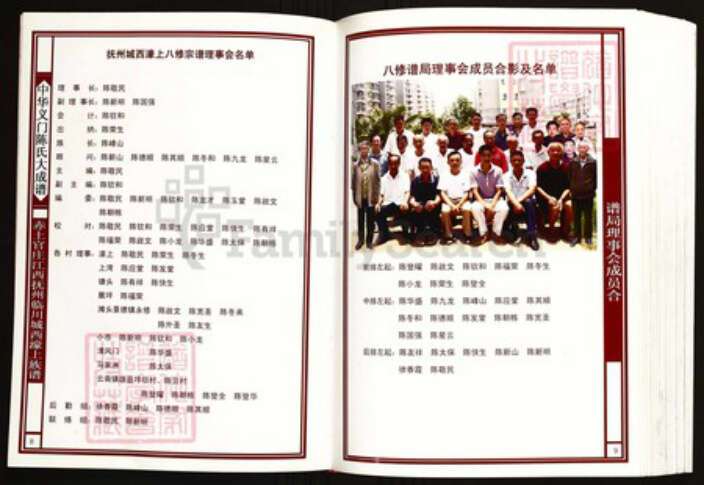 抚州城西濠上八修宗谱理事会名单
理事长：陈敬民
副理事长：陈新明 陈国强
会计：陈钦和
出纳：陈荣生
族长：陈峰山
顾问：陈新山 陈德顺 陈其顺 陈冬和 陈九龙 陈星云
主编：陈敬民
副主编：陈钦和
编委：陈敬民 陈新明 陈钦和 陈龙才 陈玉堂 陈战文
陈朝栋
校对：陈敬民 陈钦和 陈荣生 陈应堂 陈快生 陈有祥
陈福荣 陈战文 陈小龙 陈华盛 陈太保 陈朝栋
各村理事：濠上 陈敬民 陈荣生 陈冬生
上湾 陈应堂 陈发堂
塘头 陈有祥 陈快生
陈福荣
陈战文 陈宽圣 陈冬弟
陈外圣 陈友生
小市 陈新明 陈钦和 陈小龙
陈华盛
陈太保
陈登耀 陈朝栋 陈登全 陈登华
后勤组：徐春霞 陈峰山 陈德顺 陈其顺
联络组：陈敬民 陈新明
中华义门陈氏大成谱
赤土官庄江西抚州临川城西濠上族谱
8
八修谱局理事会成员合影及名单
FamilySearch
前排左起：陈登耀 陈战文 陈钦和 陈福荣 陈冬生
陈小龙 陈荣生 陈登全
中排左起：陈华盛 陈九龙 陈峰山 陈应堂 陈其顺
陈冬和 陈德顺 陈发堂 陈朝栋 陈宽圣
陈国强 陈星云
后排左起：陈友祥 陈太保 陈快生 陈新山 陈新明
徐春霞 陈敬民
谱局理事会成员合
9